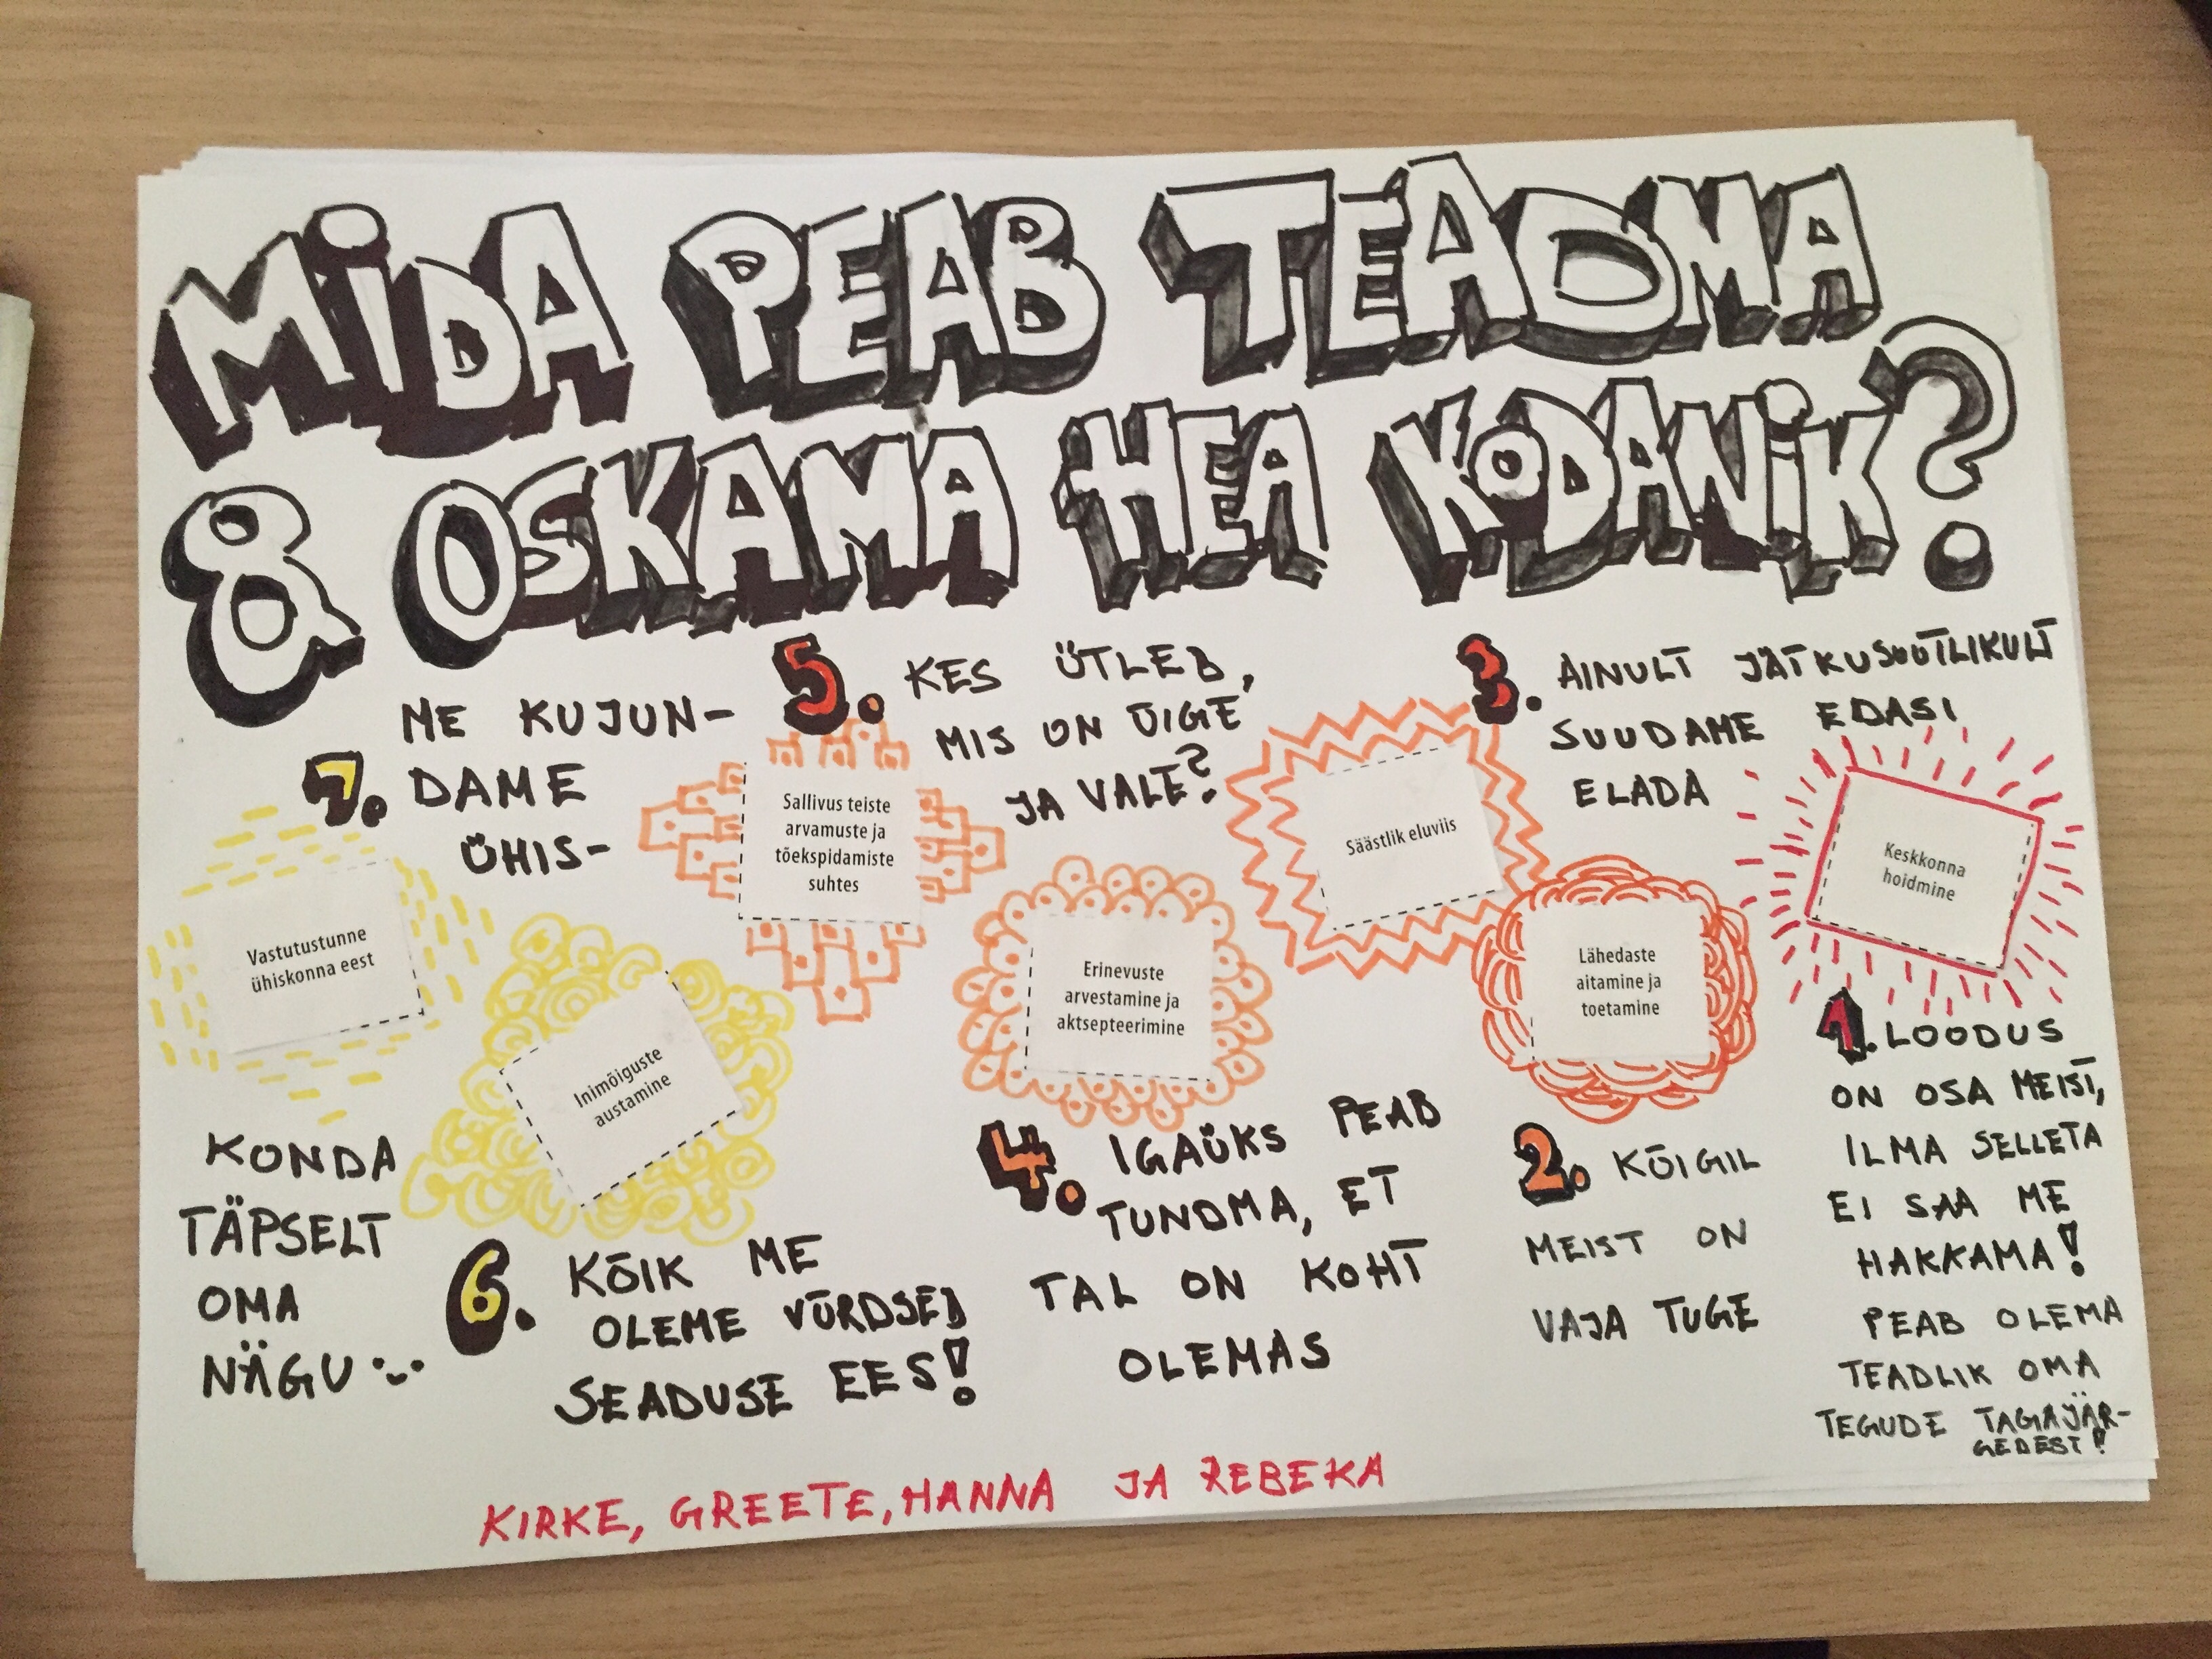 MIDA PEAB TEADMA
& OSKAMA HEA KODANIK?
7. ME KUJUN-
DAME
ÜHIS-
Vastutustunne
ühiskonna eest
KONDA
TÄPSELT
OMA
NÄGU :)
Inimõiguste
austamine
6. KÕIK ME
OLEME VÕRDSED
SEADUSE EES!
5. KES ÜTLEB,
MIS ON ÕIGE
JA VALE?
Sallivus teiste
arvamuste ja
tõekspidamiste
suhtes
Erinevuste
arvestamine ja
aktsepteerimine
4. IGAÜKS PEAB
TUNDMA, ET
TAL ON KOHT
OLEMAS
3. AINULT JÄTKUSUUTLIKULT
SUUDAME EDASI
ELADA
Säästlik eluviis
Lähedaste
aitamine ja
toetamine
2. KÕIGIL
MEIST ON
VAJA TUGE
Keskkonna
hoidmine
1. LOODUS
ON OSA MEIST,
ILMA SELLETA
EI SAA ME
HAKKAMA!
PEAB OLEMA
TEADLIK OMA
TEGUDE TAGAJÄR-
GEDEST!
KIRKE, GREETE, HANNA JA REBEKA